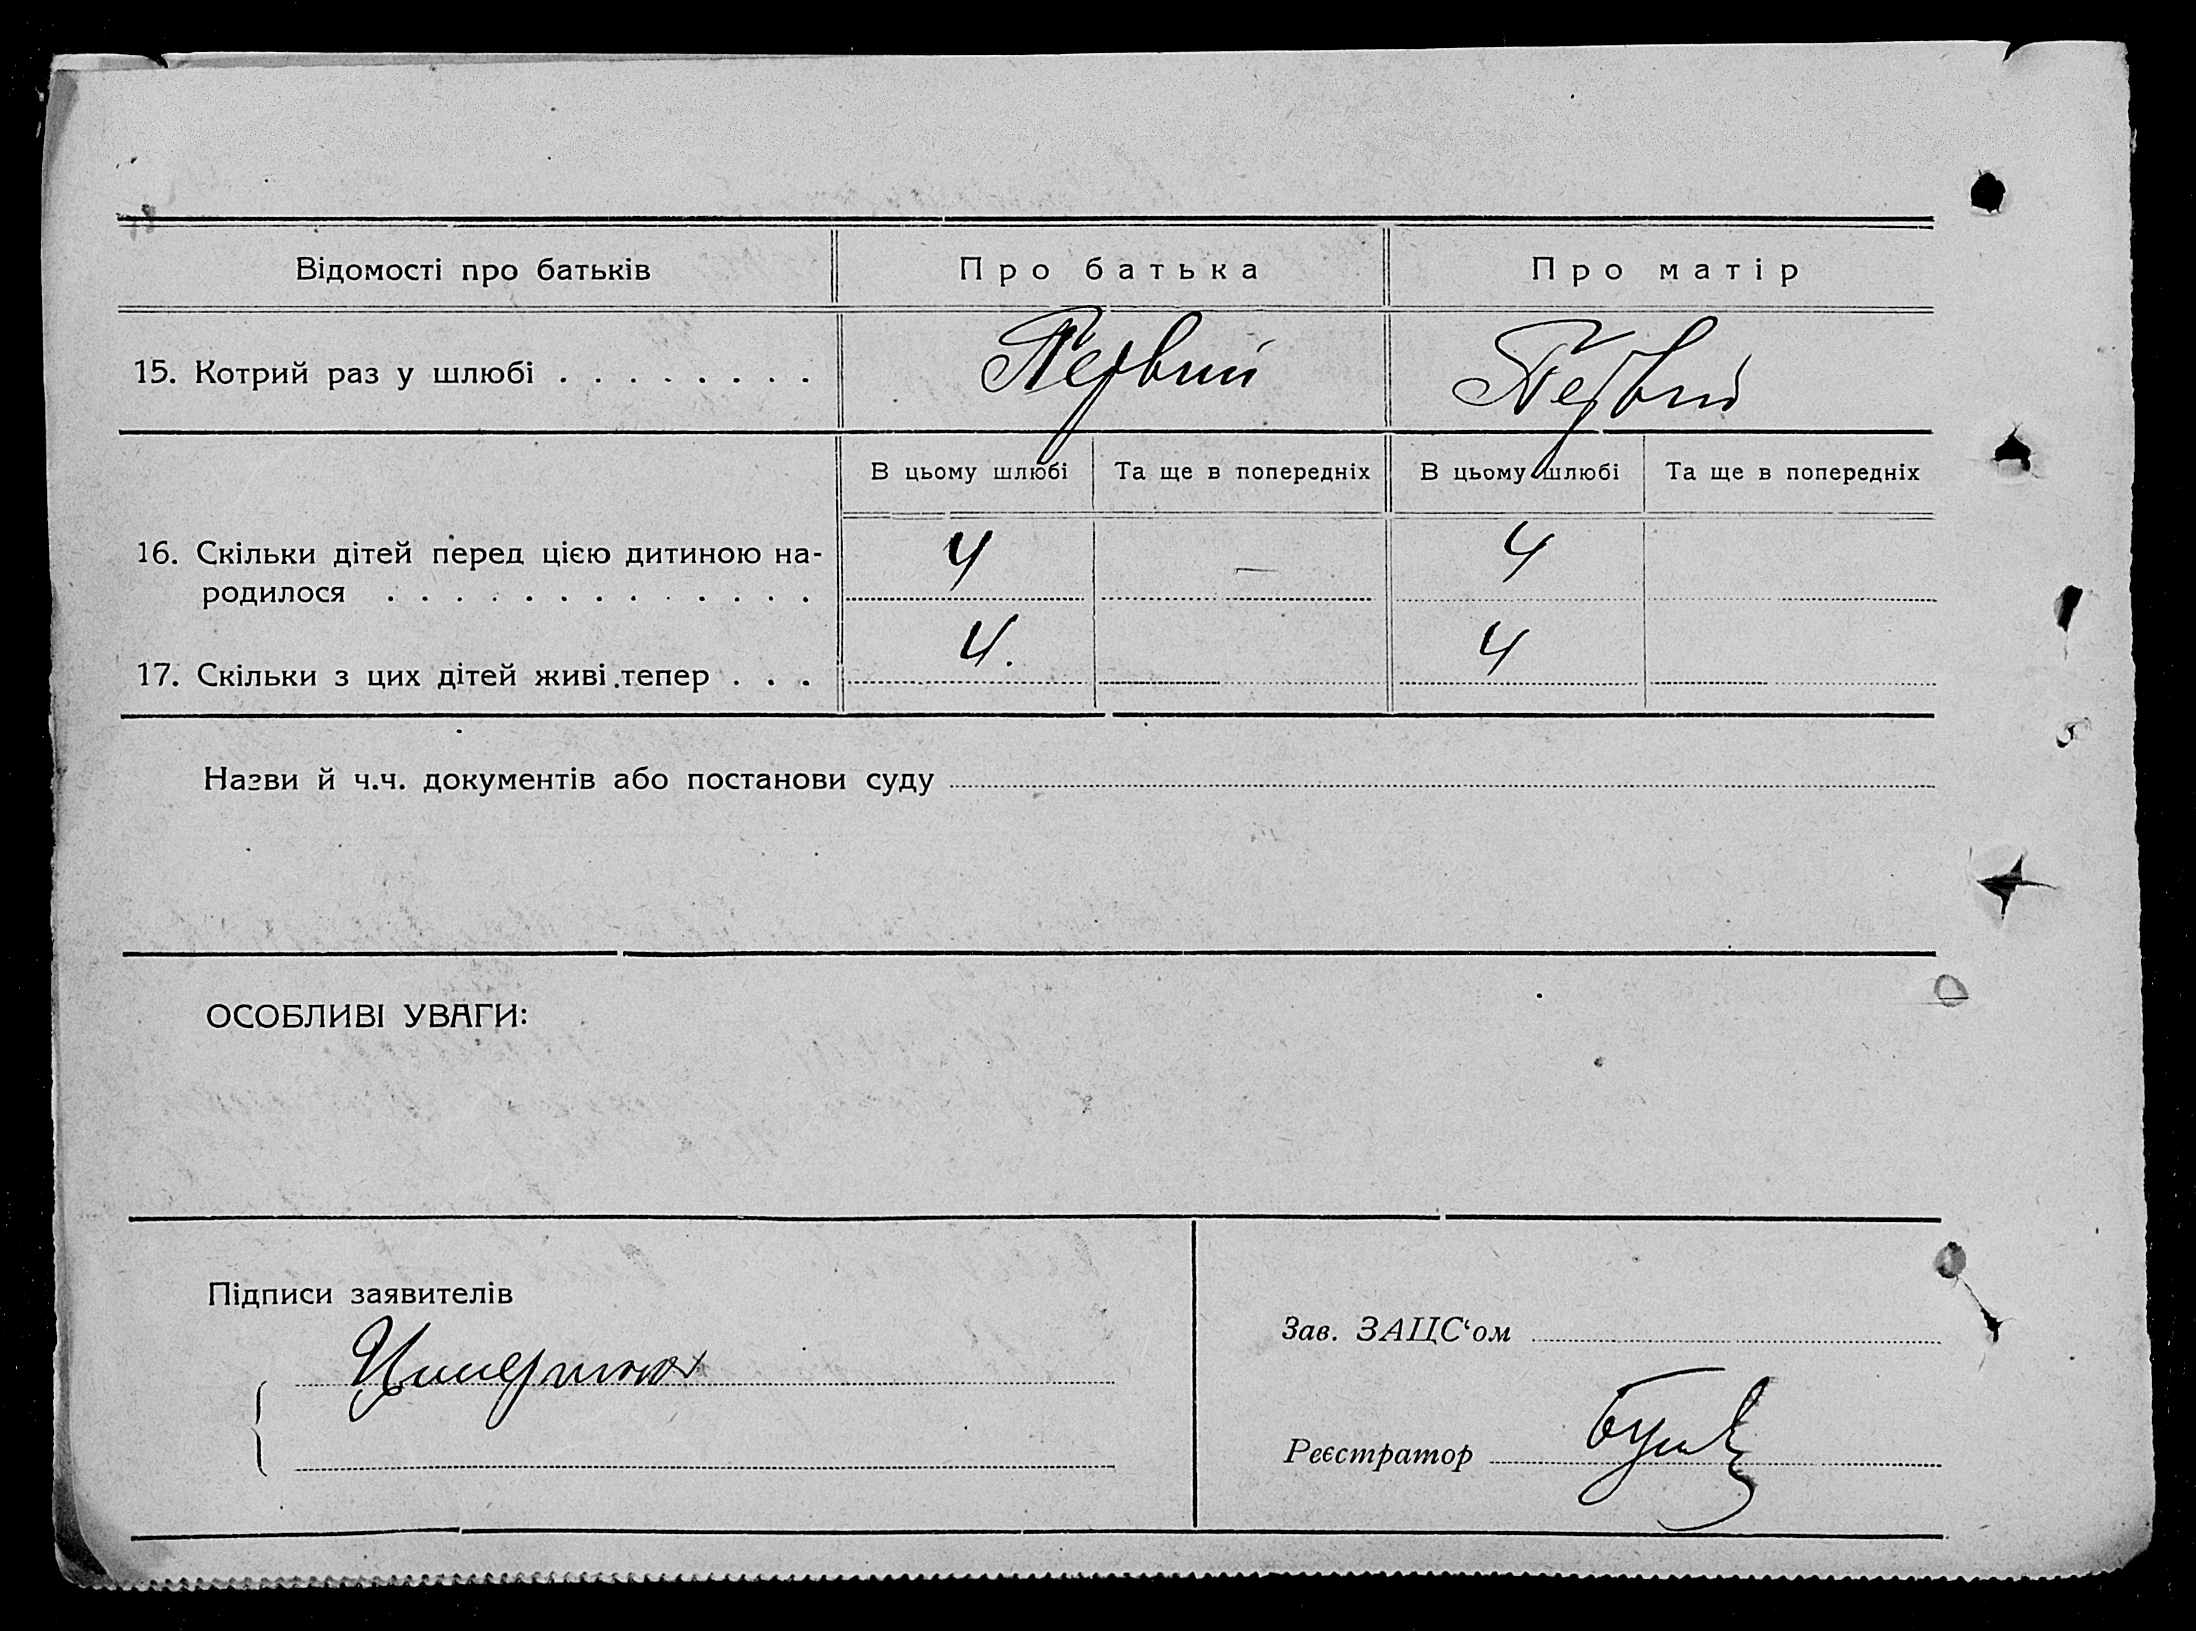 Відомості про батьків Про батька Про матір
15. Котрий раз у шлюбі . . . . . . . . Первий Первий
В цьому шлюбі Та ще в попередніх В цьому шлюбі Та ще в попередніх
16. Скільки дітей перед цією дитиною на-
родилося . . . . . . . . . . . . . 4 — 4
17. Скільки з цих дітей живі тепер . . . 4. 4
Назви й ч.ч. документів або постанови суду
ОСОБЛИВІ УВАГИ:
Підписи заявителів
Зав. ЗАЦС‘ом
Реєстратор